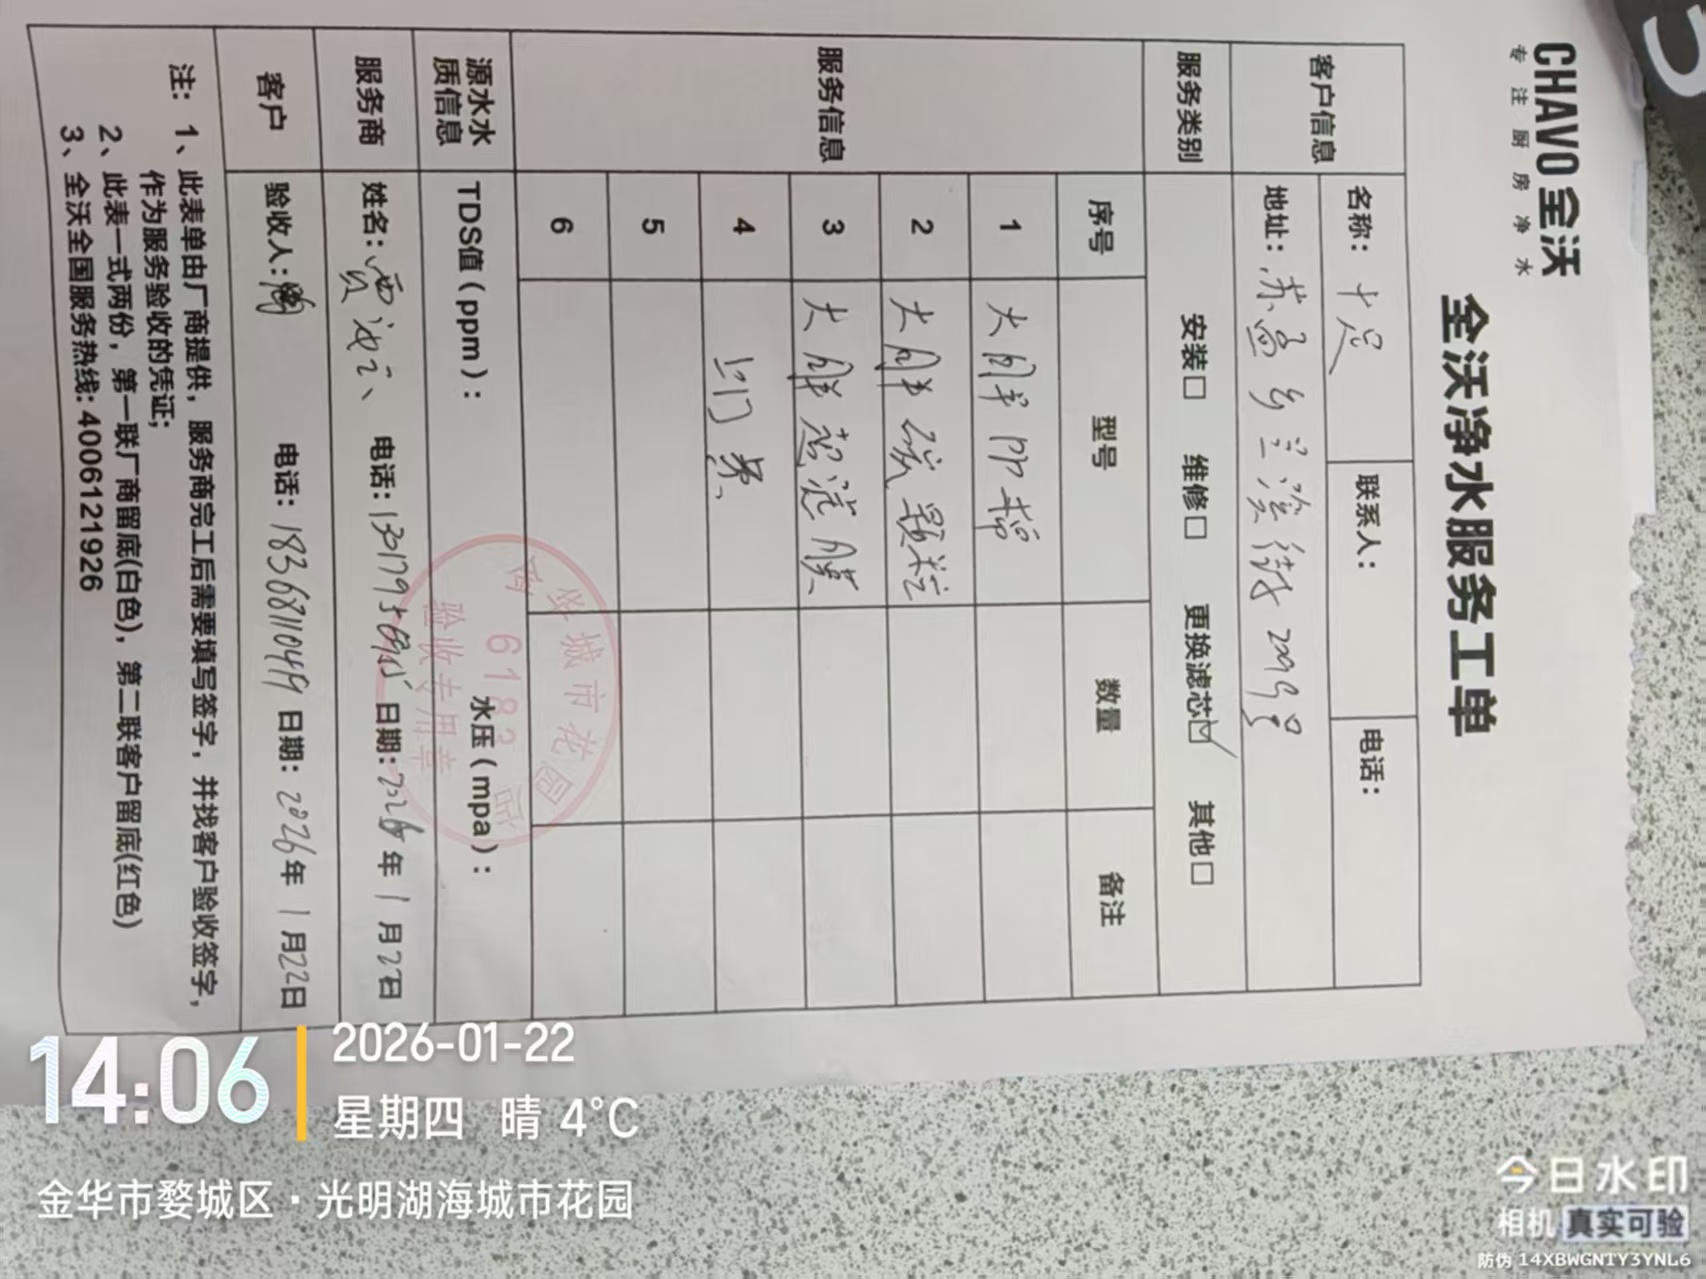 CHAVO全沃
专注厨房净水
全沃净水服务工单
客户信息
名称：十足
联系人：
电话：
地址：苏孟乡兰溪街2299号
服务类别
安装□ 维修□ 更换滤芯☑ 其他□
服务信息
序号 型号 数量 备注
1 大胖PP棉
2 大胖碳颗粒
3 大胖超滤膜
4 上门费
5
6
源水水质信息
TDS值（ppm）： 水压（mpa）：
服务商
姓名： 电话： 日期：2026年1月22日
客户
验收人： 电话：18368110449 日期：2026年1月22日
注：1、此表单由厂商提供，服务商完工后需要填写签字，并找客户验收签字，
作为服务验收的凭证；
2、此表一式两份，第一联厂商留底(白色)，第二联客户留底(红色)
3、全沃全国服务热线：4006121926
城市花园店
6183
验收专用章
14:06
2026-01-22
星期四 晴 4°C
金华市婺城区·光明湖海城市花园
今日水印
相机 真实可验
防伪 14XBWGNTY3YNL6